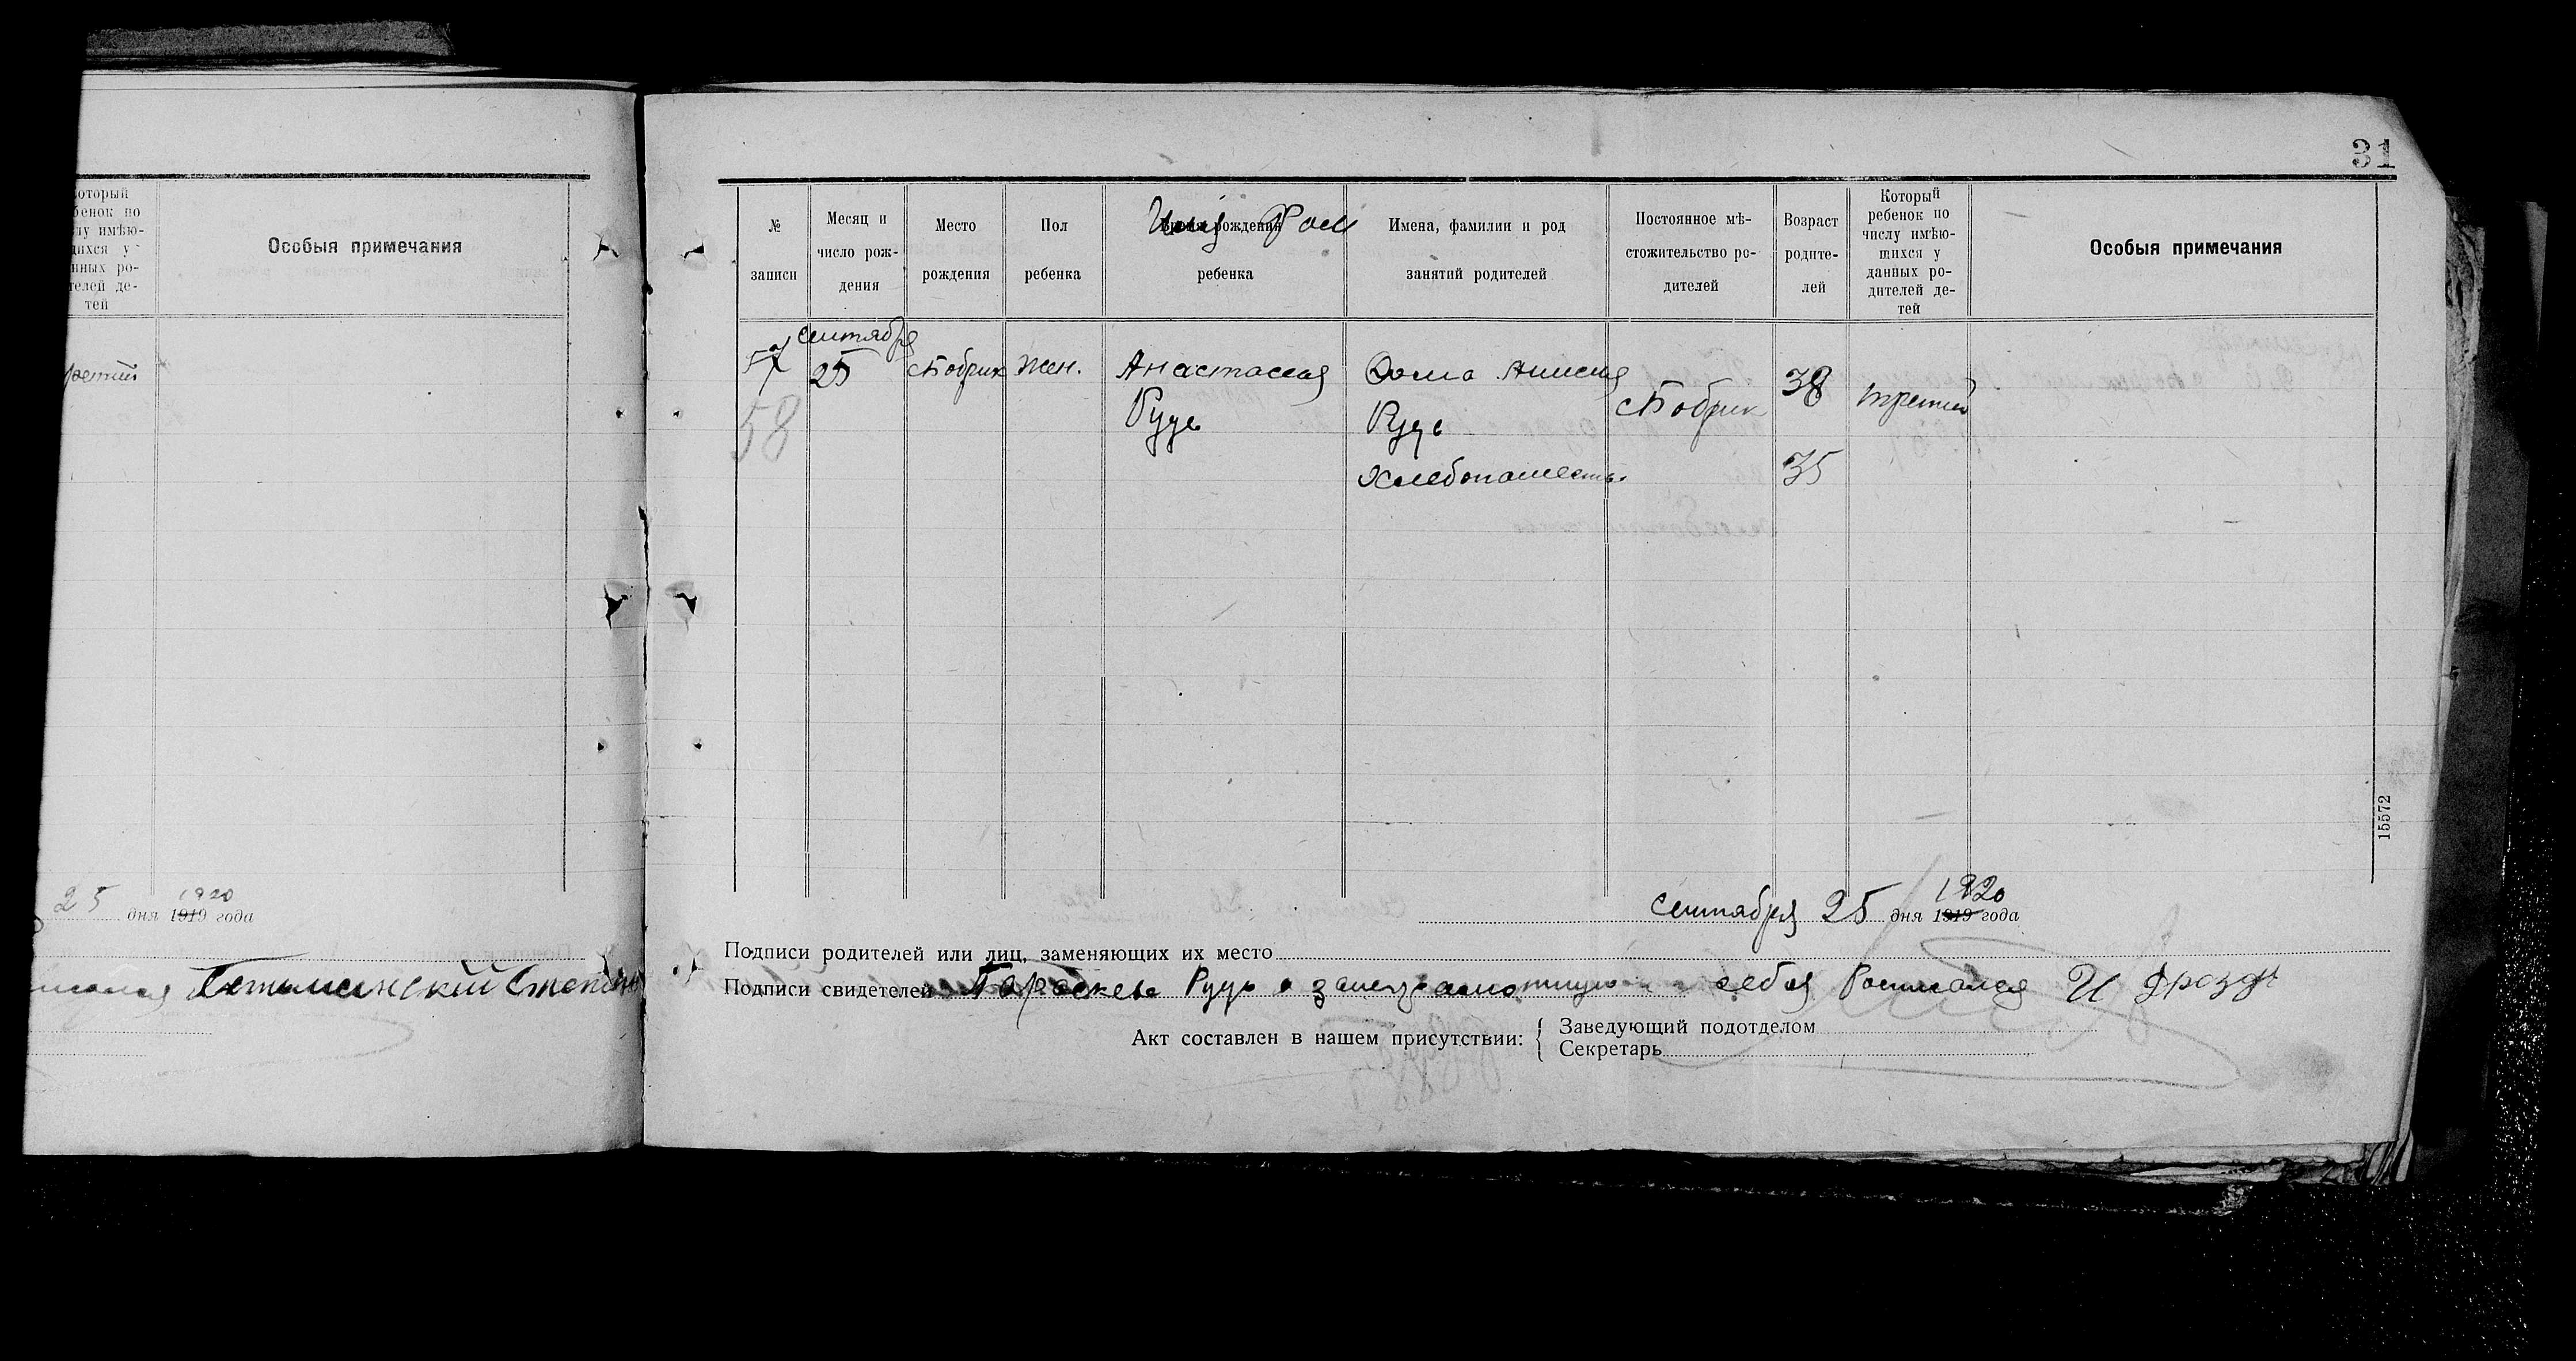 который
бенок по
лу имѣю-
щихся у
нных ро-
телей де-
тей
Особыя примечания
ретий
25 дня 1919 года
1920
31
№
записи
Месяц и
число рож-
дения
Место
рождения
Пол
ребенка
Время рождения
ребенка
Имена, фамилии и род
занятий родителей
Постоянное мѣ-
стожительство ро-
дителей
Возраст
родите-
лей
Который
ребенок по
числу имѣю-
щихся у
данных ро-
дителей де-
тей
Особыя примечания
57
58
сентября
25
с Бобрик
жен.
Анастасия
Рудь
Фома Анисия
Рудь
Хлебопашество
с Бобрик
38
35
третий
15572
сентября 25 дня 1919 года
1920
Подписи родителей или лиц, заменяющих их место
Подписи свидетелей Параскева Рудь а за неграмотную и себя Росписался И Дроздъ
Акт составлен в нашем присутствии:
Заведующий подотделом
Секретарь